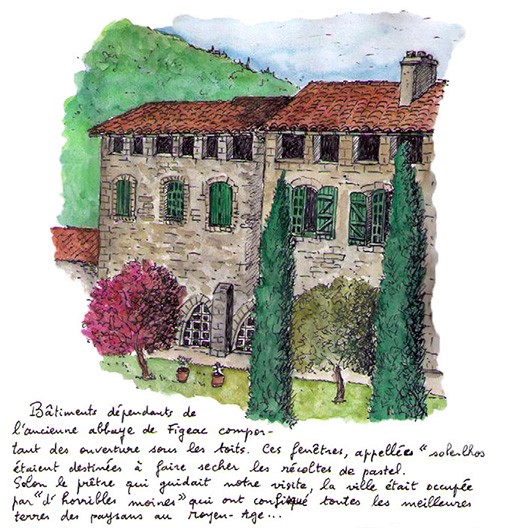 Bâtiments dépendants de
l'ancienne abbaye de Figeac compor-
tant des ouverture sous les toits. Ces fenêtres, appellées "soleilhos
étaient destinées à faire secher les récoltes de pastel.
Selon le prêtre qui guidait notre visite, la ville était occupée
par "d'horribles moines" qui ont confisqué toutes les meilleures
terres des paysans au Moyen-Age...